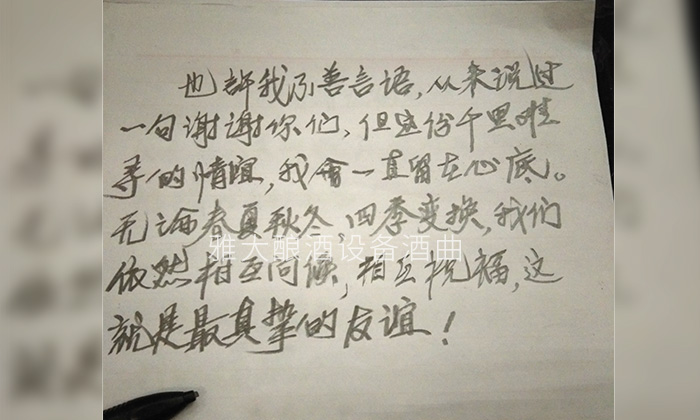 也许我不善言语,从来说过
一句谢谢你们,但这份千里难
寻的情谊,我会一直留在心底。
无论春夏秋冬,四季变换,我们
依然相互问候,相互祝福,这
就是最真挚的友谊!
雅大酿酒设备酒曲